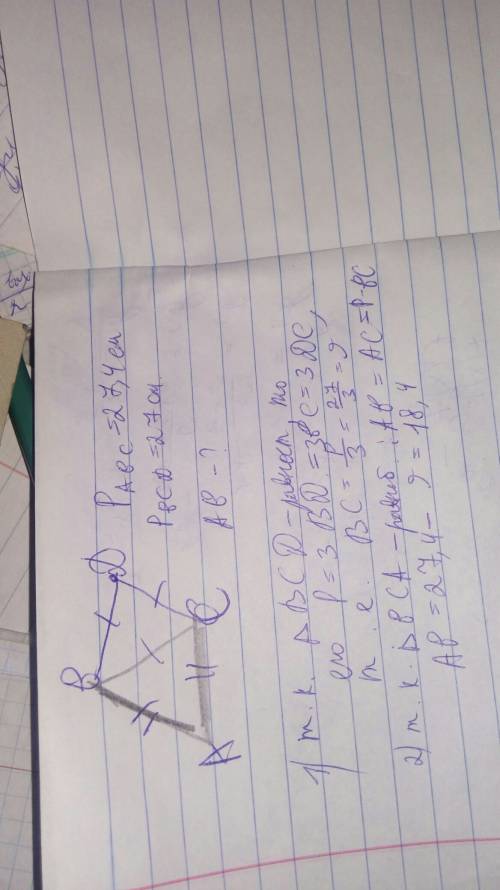 B
D
A
C
P ABC = 27,4 см
P BCD = 27 см
AB - ?
1) т. к. △ BCD - равност, то
его P = 3 BD = 3BC = 3 DC,
т. е. BC = P/3 = 27/3 = 9
2) т. к. △ BCA - равноб : AB = AC = P-BC
AB = 27,4 - 9 = 18,4